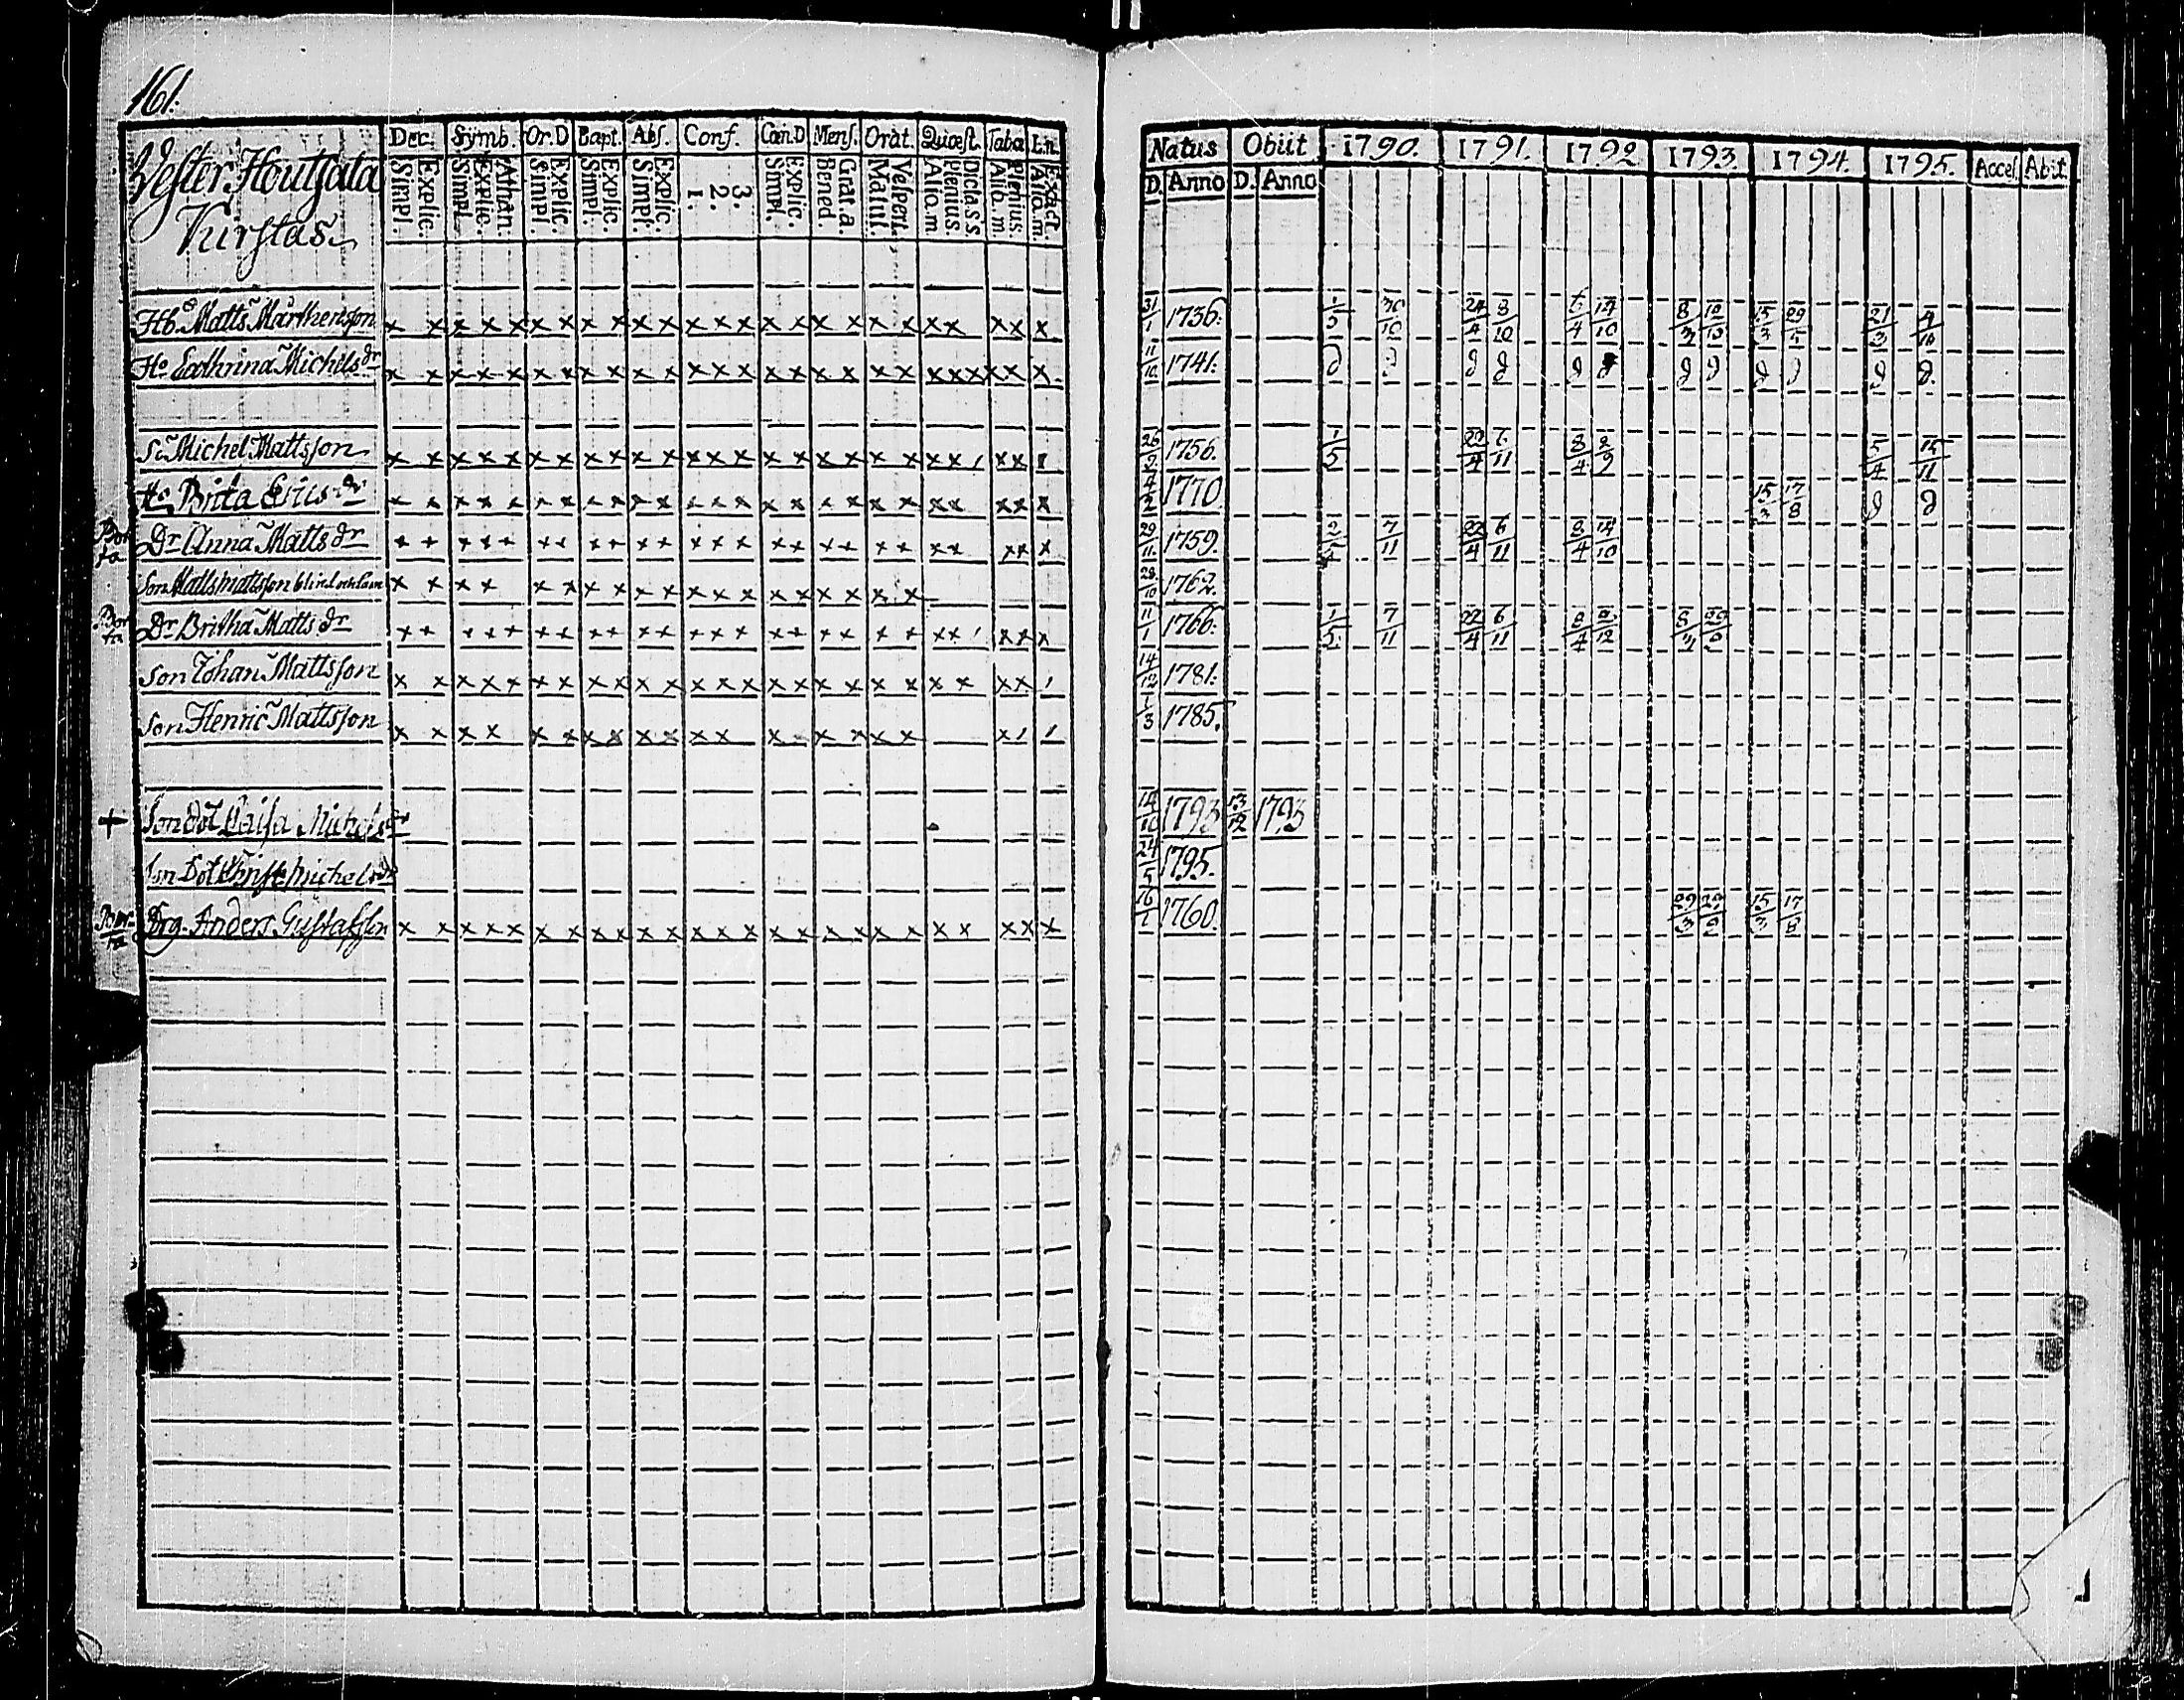 161.
Dec. Symb. Or.D Bapt. Abs. Conf. Cœn.D Mens. Orat. Quæst. Taba. Ln.
Simpl. Explic. Simpl. Explic. Athan. Simpl. Explic. Simpl. Explic. Simpl. Explic. 1. 2. 3. Simpl. Explic. Bened. Grat.a. Matut. Vespert. Alio.m Plenius Dicta S.s. Alio.m. Plenius. A lio.m. Exact.
Natus Obiit 1790. 1791. 1792 1793. 1794. 1795. Accel. Abit
D. Anno D. Anno
Vester Houtsala
Kurstas
Hb. Matts Mårthensson x x x x x x x x x x x x x x x x x x x x x x x x 31/1 1736. 1/5 30/10 24/4 8/10 6/4 14/10 8/3 12/10 15/3 29/5 21/3 4/10
Ho Cathrina Michels dr x x x x x x x x x x x x x x x x x x x x x x x x x 11/10 1741.
Sn Michel Mattsson x x x x x x x x x x x x x x x x x x x x x x 26/9 1756. 1/5 22/4 7/11 8/4 2/9 5/4 15/11
Ho Brita Erics dr x x x x x x x x x x x x x x x x x x x x x x x x 4/2 1770 15/3 17/8
Bor
ta Dr Anna Matts dr x x x x x x x x x x x x x x x x x x x x x x x x 29/11 1759. 2/4 7/11 22/4 6/11 8/4 14/10
Son Matts Mattsson blind och lam x x x x x x x x x x x x x x x x x x x 28/10 1762.
Bor
ta Dr Britha Matts dr x x x x x x x x x x x x x x x x x x x x x x x x 11/1 1766. 1/5 7/11 22/4 6/11 8/4 2/12 8/3 29/9
Son Johan Mattsson x x x x x x x x x x x x x x x x x x x x x x x 14/12 1781.
Son Henric Mattsson x x x x x x x x x x x x x x x x x x 1/3 1785.
+ Son dot Caisa Michels dr 14/10 1793 13/12 1793
Son Dot Christ Michels dr 24/5 1795.
Bor-
ta Drg. Anders Gustafsson x x x x x x x x x x x x x x x x x x x x x x x x 16/1 1760. 29/3 29/9 15/3 17/8